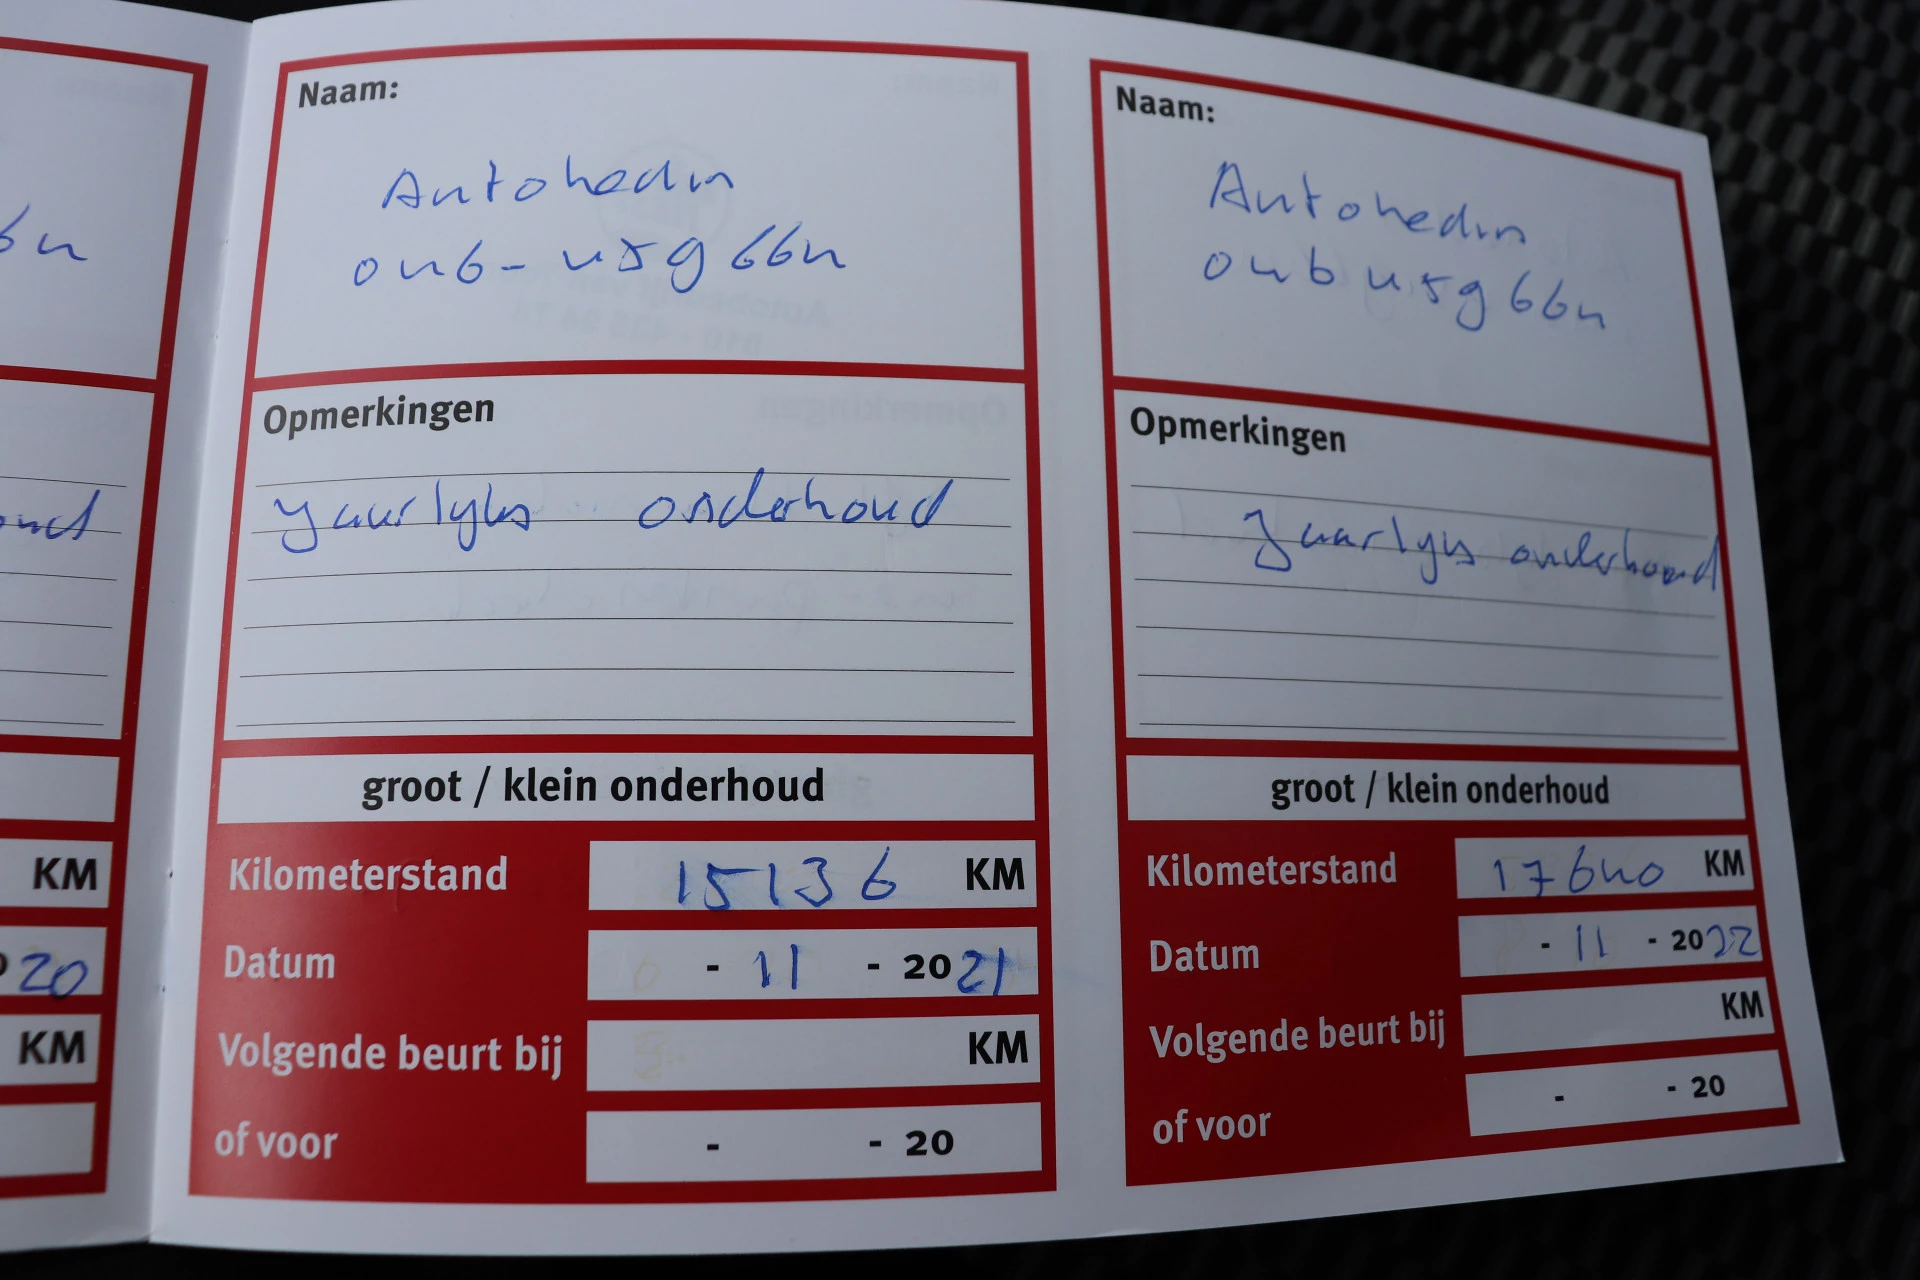 KM
20
KM
Naam:
Autohedin
Opmerkingen
Jaarlyks onderhoud
groot / klein onderhoud
Kilometerstand 15136 KM
Datum - 11 - 2021
Volgende beurt bij KM
of voor - - 20
Naam:
Autohedin
Opmerkingen
Jaarlyks onderhoud
groot / klein onderhoud
Kilometerstand 17640 KM
Datum - 11 - 2022
Volgende beurt bij KM
of voor - - 20